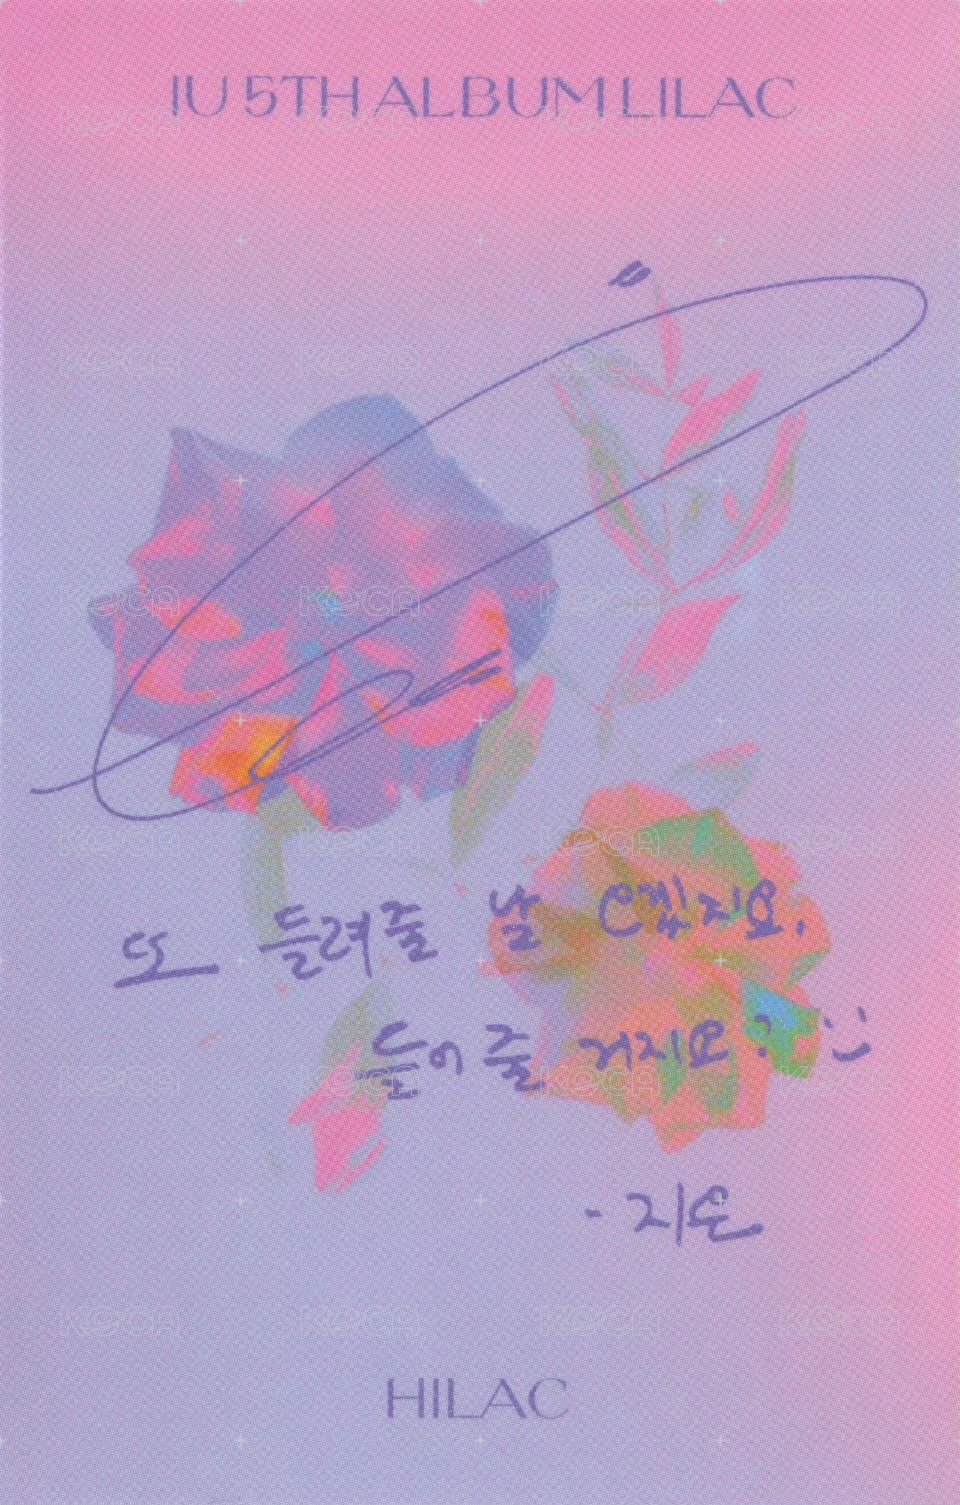 IU 5TH ALBUM LILAC
또 들려줄 날 오겠지요.
들어 줄 거지요? :)
- 지은
HILAC